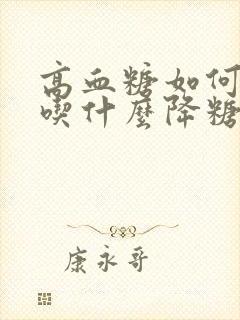 高血糖如何
喫什麼降糖
康永哥